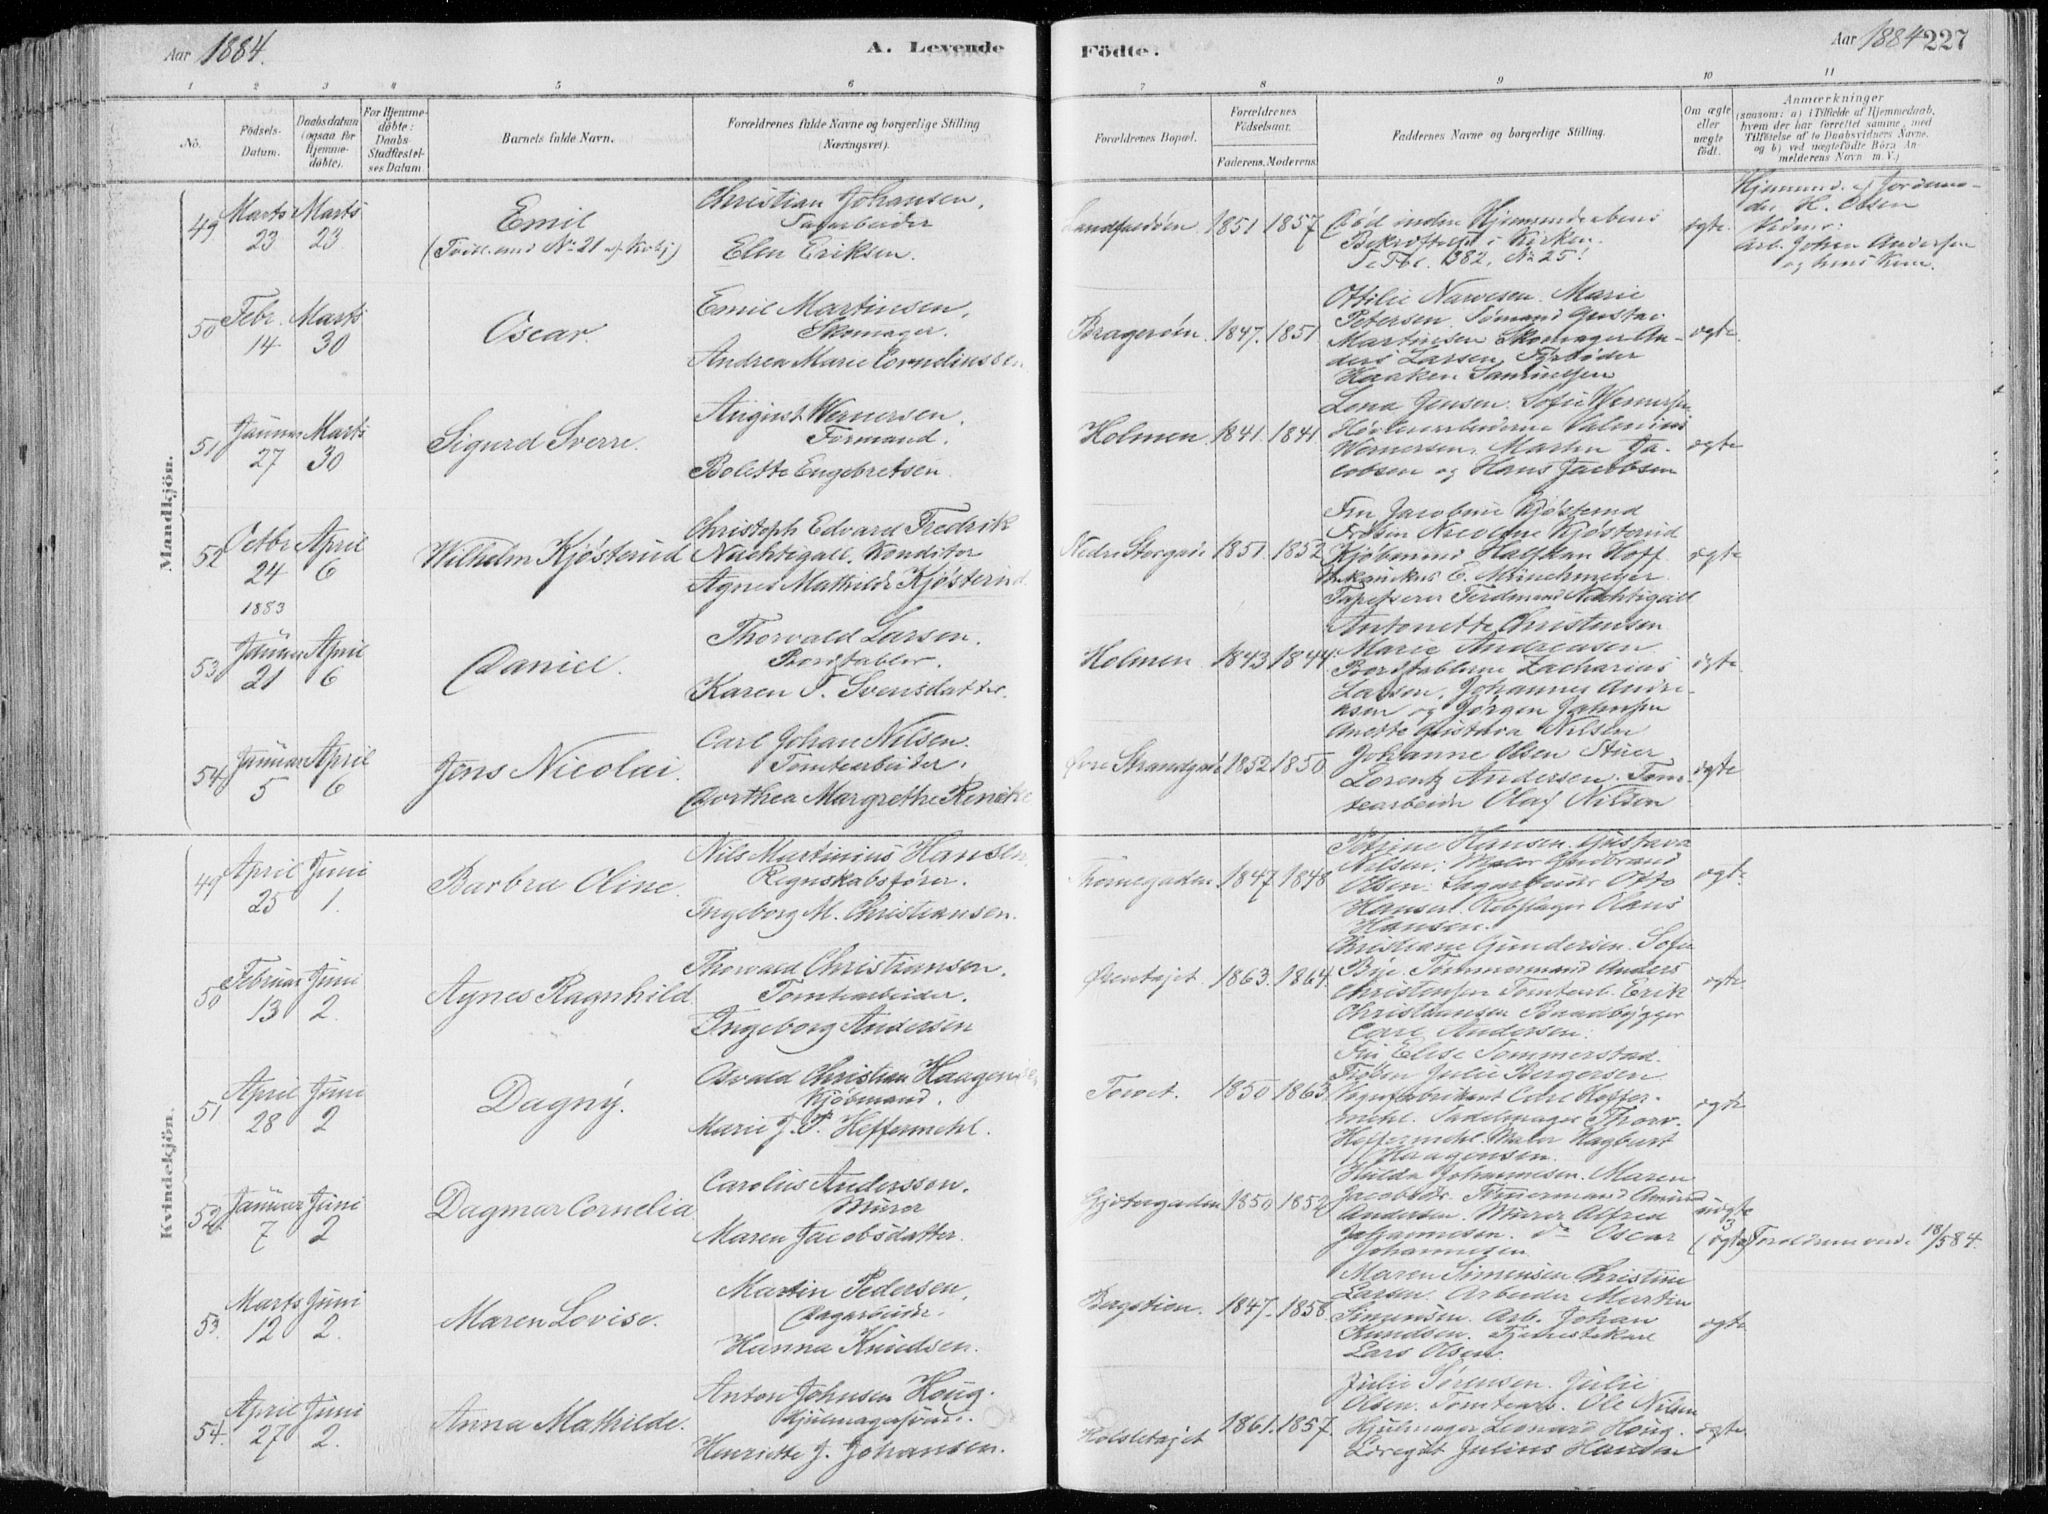 Aar 1884.
A. Levende
Födte.
Aar 1884 227
1 2 3 4 5 6 7 8 9 10 11
No.
Födsels-Datum.
Daabsdatum (ogsaa for Hjemmedöbte).
For Hjemmedöbte: Daabs-Stadfæstelses Datum
Barnets fulde Navn.
Forældrenes fulde Navne og borgerlige Stilling (Næringsvei).
Forældrenes Bopæl.
Forældrenes Födselsaar.
Faderens. Moderens.
Faddernes Navne og borgerlige Stilling.
Om ægte eller uægte födt.
Anmærkninger
(saasom: a) i Tilfælde af Hjemmedaab, hvem der har forrettet samme, med Tilföielse af to Daabsvidners Navne, og b) ved uægtefödte Börn Anmelderens Navn m. V.)
Mandkjön.
49 Marts 23 Marts 23
Emil
(Tvill. med No 21 af Kvkj.)
Christian Johansen,
Sagarbeider
Elen Eriksen.
1851 1857
Död inden Hjemmedaabens
Bekræftelse i Kirken.
No 25!
ægte.
H. Olsen
Vidner:
Arb. Johan Andersen
og hans Kone.
50 Febr. 14 Marts 30
Oscar.
Emil Martinsen,
Skomager.
Andrea Marie Corneliussen
Bragerøen 1847. 1851
Ottilie Narvesen. Marie
Petersen. Sømand Gustav
Martinsen Skomager An-
ders Larsen, Fyrbøder
Haaken Samuelsen
ægte.
51 Januar 27 Marts 30
Sigurd Sverre.
August Wernersen.
Formand.
Bolette Engebretsen.
Holmen 1841. 1841.
Lona Jensen. Sofie Wernersen
Høvleriarbeiderne
Wernersen. Martin Ja-
cobsen og Hans Jacobsen
ægte
52 Octbr 24 1883 April 6
Wilhelm Kjösterud
Christoph Edvard Fredrik
Nachtigall. Konditor
Agnes Mathilde Kjösterud
Nedre Storgade 1851 1852
Fru Jacobine Kjösterud
Frøken Nicoline Kjösterud
Kjøbmænd Halfdan Hoff.
E. Münchmeyer.
Tapetserer Ferdinand Nachtigall
ægte
53 Januar 21 April 6
Daniel.
Thorvald Larsen.
Bordstabler.
Karen T. Svensdatter.
Holmen 1843 1844.
Antonette Christensen
Marie Andreasen
Bordstablerne Zacharias
Larsen, Johannes Andre-
asen og Jørgen Jahnsen
ægte.
54 Januar 5 April 6
Jens Nicolai.
Carl Johan Nilsen.
Tomtearbeider.
Dorthea Margrethe
Øvre Strandgade 1852 1850
Anette Gustava Nilsen
Johanne Olsen
Lorentz Andersen. Tom-
tearbeider Olaf Nilsen
ægte
Kvindekjön.
49 April 25 Juni 1.
Barbra Oline.
Nils Martinius Hansen,
Regnskabsfører.
Ingeborg M. Christiansen.
Tornegaden 1847 1848
Petrine Hansen. Gustava
Nilsen. Maler Gudbrand
Olsen. Sagarbeider Otto
Hansen. Rebslager Olaus
Hansen.
ægte.
50 Februar 13 Juni 2.
Agnes Ragnhild
Thorvald Christiansen.
Tomtearbeider.
Ingeborg Andersen
Øvretajet 1863. 1864.
Christiane Gundersen. Sofie
Bye. Tømmermand Anders
Christensen Tomtearb. Erik
Christiansen Baadbygger
Carl Andersen.
ægte
51 April 28 Juni 2
Dagny.
Osvald Christian Haagensen,
Kjøbmand.
Marie J. P. Heffermehl.
Torvet. 1850 1863
Fru Elise Tommerstad.
Frøken Julie Bergersen
Vognfabrikant Carl Heffer-
mehl. Sadelmager Thorv.
Heffermehl. Maler Hagbart
Haagensen.
ægte
52 Januar 7 Juni 2
Dagmar Cornelia
Carolius Anderssen.
Murer
Maren Jacobsdatter.
Gjetergaden 1850 1852
Hulda Johannesen. Maren
Jacobsdr. Tømmermand
Andersen. Murer Alfred
Johannesen. do Oscar
Johannesen
uægte
(ægte)
18/5 84.
53. Marts 12 Juni 2.
Maren Lovise.
Martin Pedersen,
Dagarbeider.
Hanna Knudsen.
Bergstien. 1847. 1858
Maren Simensen Christine
Larsen. Arbeider Martin
Simensen. Arb. Johan
Knudsen. Tjenestekarl
Lars Olsen.
ægte
54. April 27 Juni 2.
Anna Mathilde.
Anton Johnsen Houg.
Hjulmagersvend.
Henriette J. Johansen.
1861. 1857.
Julie Sørensen. Julie
Olsen. Tomtearb. Ole Nilsen
Hjulmager Leonard Houg.
Lovegut Julius Hansen
ægte